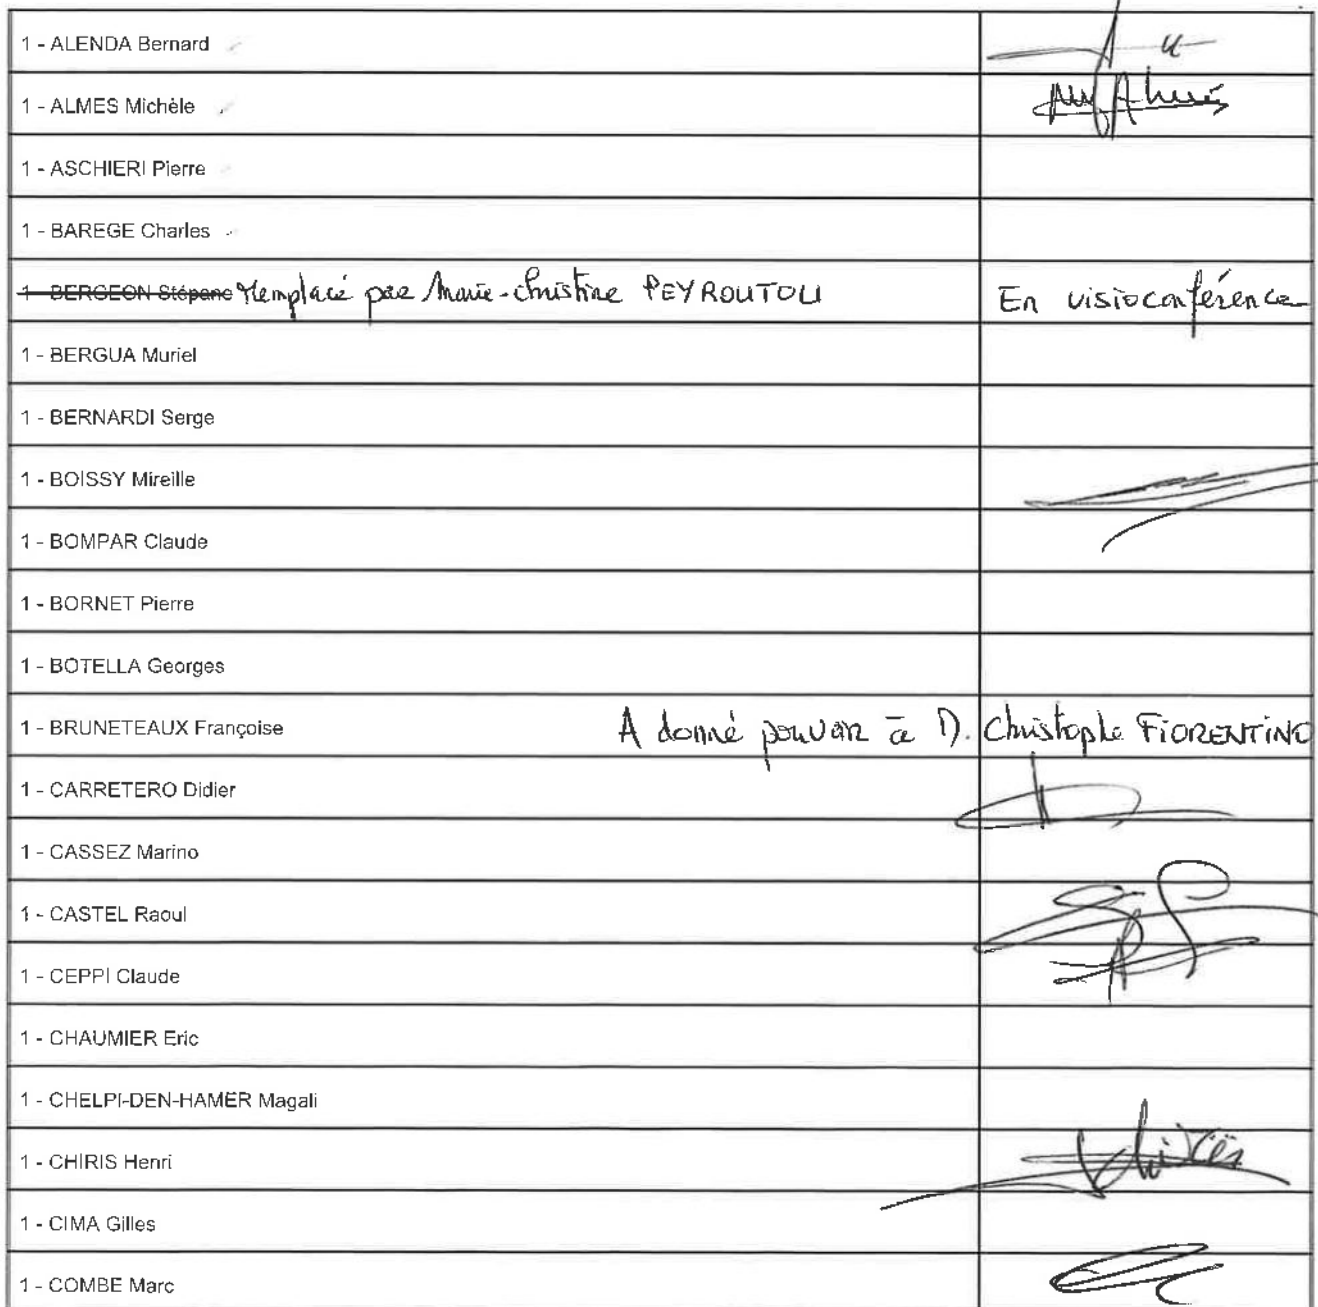 1 - ALENDA Bernard
1 - ALMES Michèle
1 - ASCHIERI Pierre
1 - BAREGE Charles
1 - BERGEON Stépane Remplacé par Marie-Christine PEYROUTOU En visioconférence
1 - BERGUA Muriel
1 - BERNARDI Serge
1 - BOISSY Mireille
1 - BOMPAR Claude
1 - BORNET Pierre
1 - BOTELLA Georges
1 - BRUNETEAUX Françoise A donné pouvoir à D. Christophe FIORENTINO
1 - CARRETERO Didier
1 - CASSEZ Marino
1 - CASTEL Raoul
1 - CEPPI Claude
1 - CHAUMIER Eric
1 - CHELPI-DEN-HAMER Magali
1 - CHIRIS Henri
1 - CIMA Gilles
1 - COMBE Marc